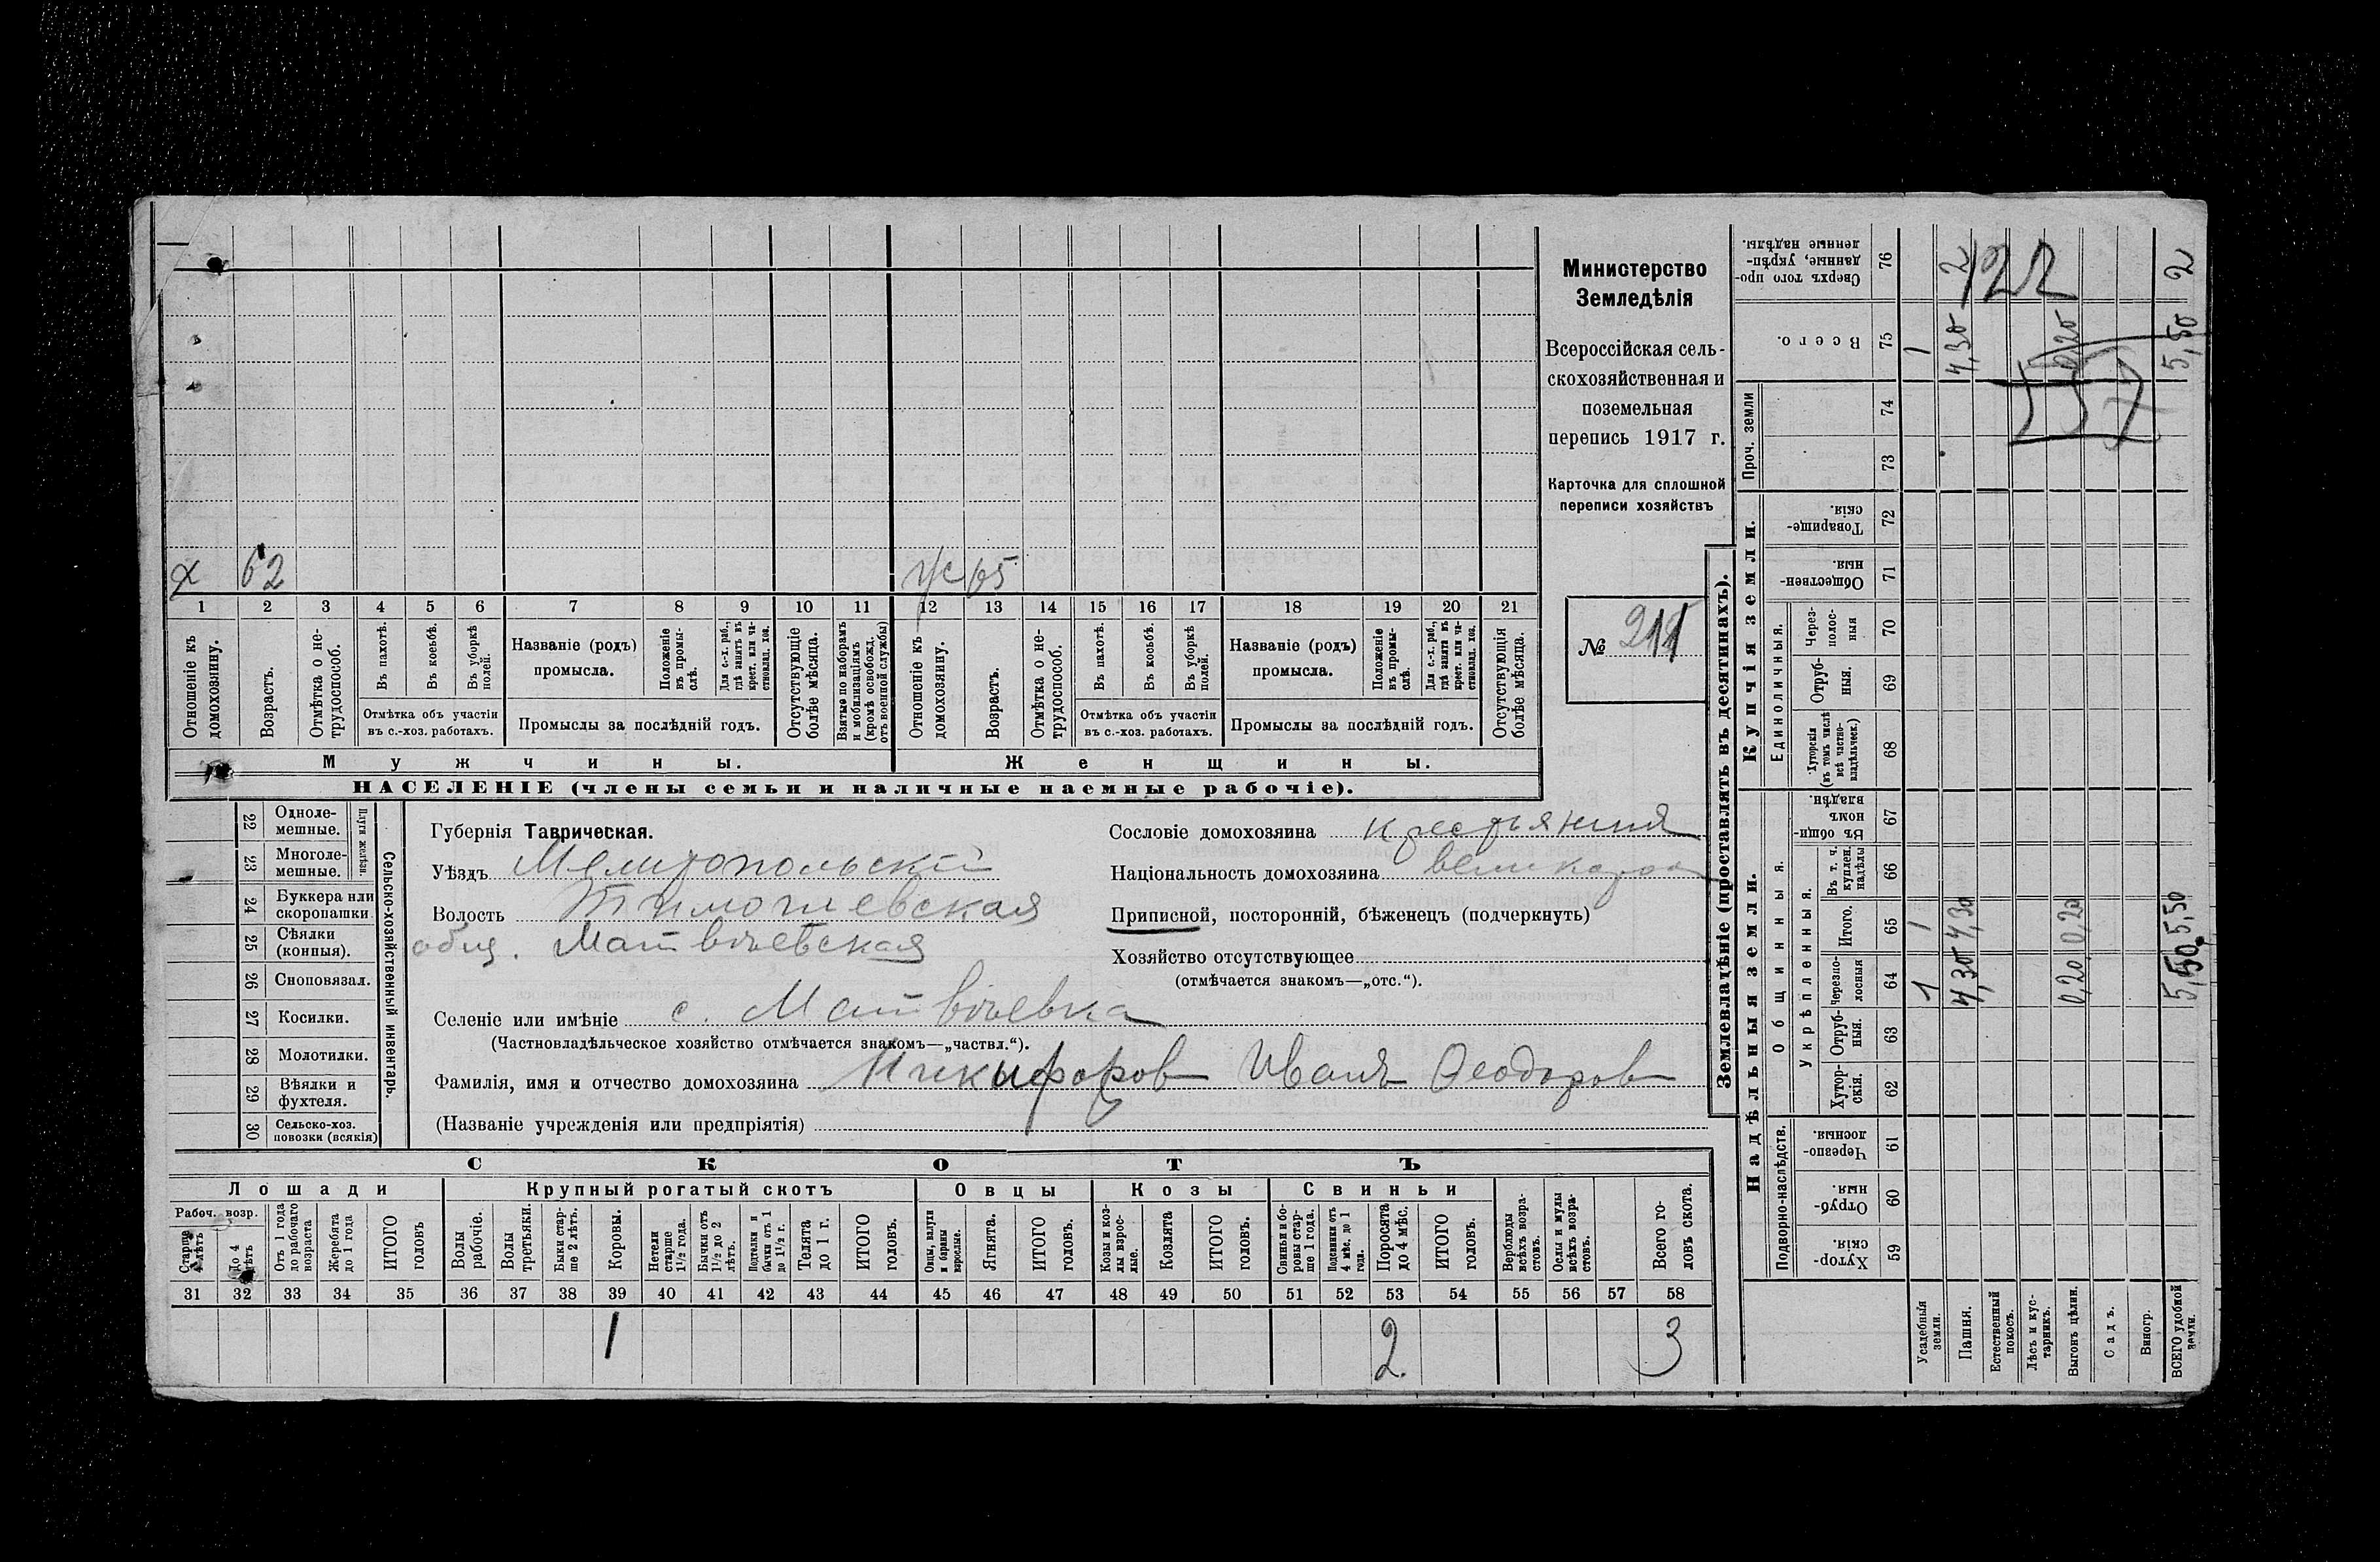 х 62 ж 65
1 2 3 4 5 6 7 8 9 10 11 12 13 14 15 16 17 18 19 20 21
Отношеніе къ домохозяину.
Возрастъ.
Отмѣтка о не-
трудоспособ.
Въ пахотѣ.
Въ косьбѣ.
Въ уборкѣ
полей.
Отмѣтка объ участіи
въ с.-хоз. работахъ.
Названіе (родъ)
промысла.
Положеніе
въ промы-
слѣ.
Для с.-х. раб.,
гдѣ занятъ въ
крест. или ча-
стновлад. хоз.
Промыслы за послѣдній годъ.
Отсутствующіе
болѣе мѣсяца.
Взятые по наборамъ
и мобилизаціямъ
(кромѣ освобожд.
отъ военной службы)
Отношеніе къ
домохозяину.
Возрастъ.
Отмѣтка о не-
трудоспособ.
Въ пахотѣ.
Въ косьбѣ.
Въ уборкѣ
полей.
Отмѣтка объ участіи
въ с.-хоз. работахъ.
Названіе (родъ)
промысла.
Положеніе
въ промы-
слѣ.
Для с.-х. раб.,
гдѣ занята въ
крест. или ча-
стновлад. хоз.
Промыслы за послѣдній годъ.
Отсутствующія
болѣе мѣсяца.
Мужчины. Женщины.
НАСЕЛЕНІЕ (члены семьи и наличные наемные рабочіе).
Министерство
Земледѣлія
Всероссійская сель-
скохозяйственная и
поземельная
перепись 1917 г.
Карточка для сплошной
переписи хозяйствъ
№
22 Одноле-
мешные.
23 Многоле-
мешные.
Плуги желѣзн.
24 Буккера или
скоропашки
25 Сѣялки
(конныя).
26 Сноповязал.
27 Косилки.
28 Молотилки.
29 Вѣялки и
фухтеля.
30 Сельско-хоз.
повозки (всякія)
Сельско-хозяйственный инвентарь.
Губернія Таврическая.
Уѣздъ Мелитопольскій
Волость Тимошевская
общ. Матвѣевская
Селеніе или имѣніе с. Матвѣевка
(Частновладѣльческое хозяйство отмѣчается знакомъ—„частвл.“).
Фамилія, имя и отчество домохозяина Никифоров Иванъ Ѳеодоров
(Названіе учрежденія или предпріятія)
Сословіе домохозяина крестьянин
Національность домохозяина великорос
Приписной, посторонній, бѣженецъ (подчеркнуть)
Хозяйство отсутствующее
(отмѣчается знакомъ—„отс.“).
СКОТЪ
Лошади Крупный рогатый скотъ Овцы Козы Свиньи
Рабоч. возр.
Старше 4 лѣтъ
До 4 лѣтъ
Отъ 1 года
до рабочаго
возраста
Жеребята
до 1 года
ИТОГО
головъ
Волы
рабочіе.
Волы
третьяки.
Быки стар-
ше 2 лѣтъ.
Коровы.
Нетели
старше
1½ года.
Бычки отъ
1½ до 2
лѣтъ.
Подтелки и
бычки отъ 1
до 1½ г.
Телята
до 1 г.
ИТОГО
головъ.
Овцы, валухи
и бараны
взрослые.
Ягнята.
ИТОГО
головъ.
Козы и коз-
лы взрос-
лые.
Козлята
ИТОГО
головъ.
Свиньи и бо-
ровы стар-
ше 1 года.
Подсвинки отъ
4 мѣс. до 1
года.
Поросята
до 4 мѣс.
ИТОГО
головъ.
Верблюды
всѣхъ возра-
стовъ.
Ослы и мулы
всѣхъ возра-
стовъ.
Всего го-
ловъ скота.
31 32 33 34 35 36 37 38 39 40 41 42 43 44 45 46 47 48 49 50 51 52 53 54 55 56 57 58
1 2. 3
Землевладѣніе (проставлять въ десятинахъ).
Надѣльныя земли. Купчія земли.
Подворно-наслѣдств.
Общинныя.
Укрѣпленныя.
Единоличныя.
Проч. земли
Хутор-
скія. 59
Отруб-
ныя. 60
Черезпо-
лосныя. 61
Хутор-
скія. 62
Отруб-
ныя. 63
Черезпо-
лосныя 64
Итого. 65
Въ т. ч.
куплен.
надѣлы 66
Въ общин-
номъ
владѣн. 67
Хуторскія
(въ томъ числѣ
всѣ частно-
владѣльческ.) 68
Отруб-
ныя. 69
Через-
полос-
ныя 70
Обществен-
ныя. 71
Товарище-
скія. 72
73
74
Всего. 75
Сверхъ того про-
данные, укрѣп-
ленные надѣлы. 76
Усадебныя
земли. 1 1 1
Пашня. 4,30 4,30 4,30 2
Естественный
покосъ.
Лѣсъ и кус-
тарникъ.
Выгонъ цѣлин. 0,20 0,20 0,20
Садъ.
Виногр.
ВСЕГО удобной
земли. 5,50 5,50 5,50 2
122